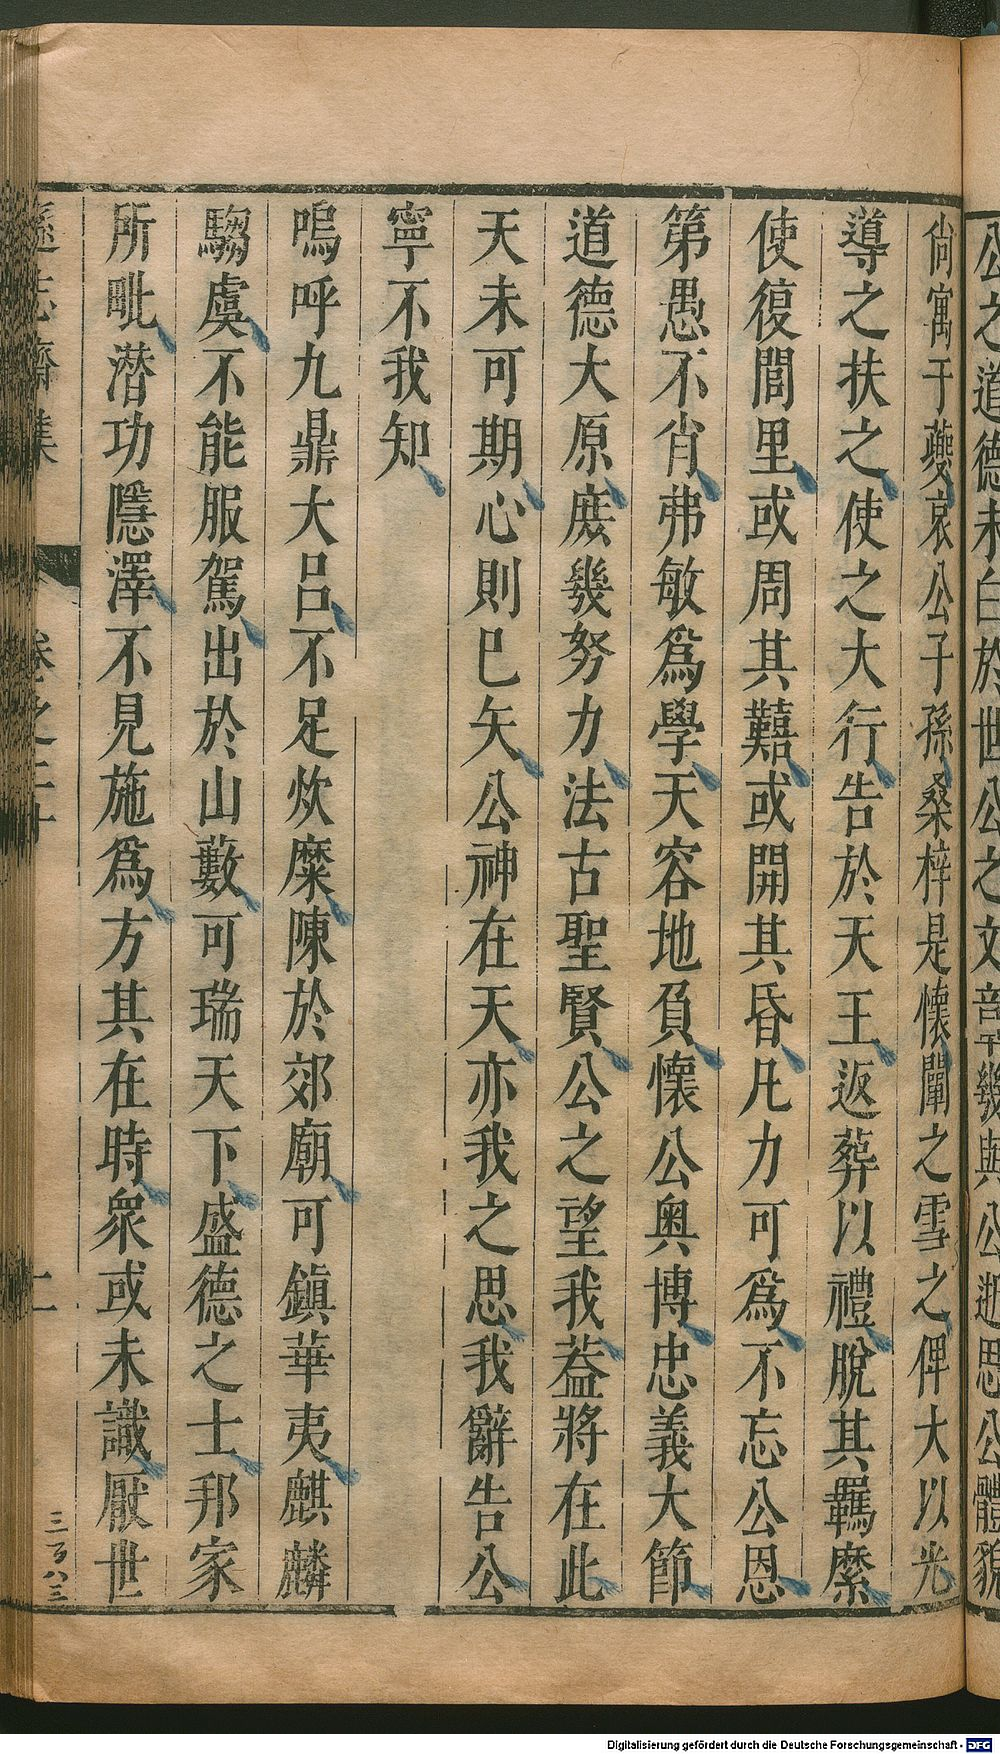 公之道德未白於世公之文部平幾與公逝思公體貌
尚寓于夔哀公子孫桑梓是懷闡之雪之俾大以光
導之扶之使之大行告於天王返葬以禮脫其羈縻
使復閭里或周其囏或開其昏凡力可爲不忘公恩
第愚不肖弗敏爲學天容地負懷公奥博忠義大節
道德大原庶幾努力法古聖賢公之望我葢將在此
天未可期心則巳矢公神在天亦我之思我辭告公
寧不我知
嗚呼九鼎大呂不足炊糜陳於郊廟可鎮華夷麒麟
騶虞不能服駕出於山藪可瑞天下盛德之士邦家
所毗潜功隱澤不見施爲方其在時衆或未識厭世
遜志齋集 卷之二十 二
三百八三
Digitalisierung gefördert durch die Deutsche Forschungsgemeinschaft - DFG